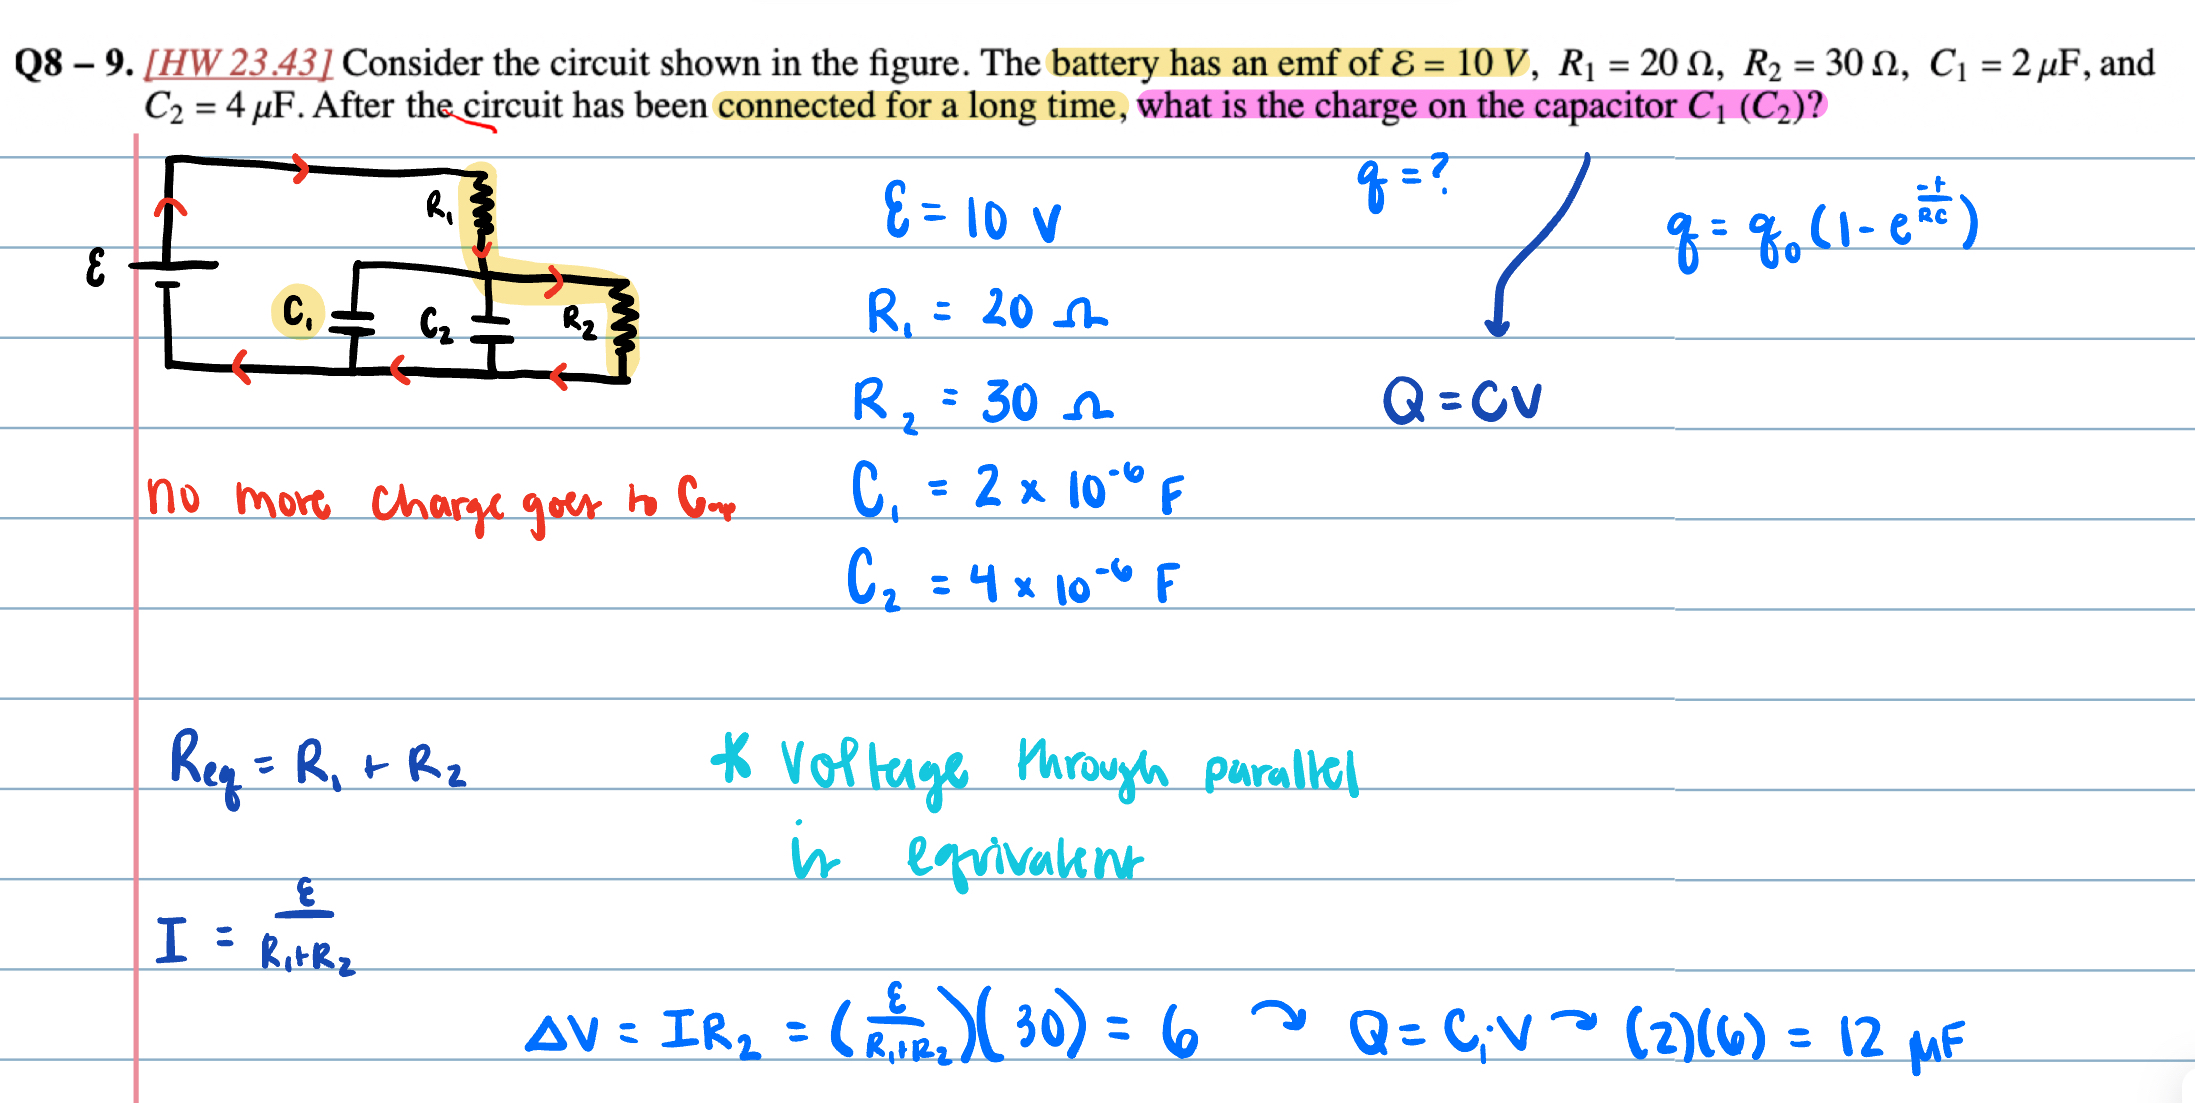 Q8 – 9. [HW 23.43] Consider the circuit shown in the figure. The battery has an emf of ℰ = 10 V, R₁ = 20 Ω, R₂ = 30 Ω, C₁ = 2 μF, and
C₂ = 4 μF. After the circuit has been connected for a long time, what is the charge on the capacitor C₁ (C₂)?
ℰ
R₁
C₁
C₂
R₂
ℰ = 10 V
R₁ = 20 Ω
R₂ = 30 Ω
C₁ = 2 × 10⁻⁶ F
C₂ = 4 × 10⁻⁶ F
q = ?
q = q₀ (1 - e^(-t/RC))
Q = CV
no more charge goes to Cap
Req = R₁ + R₂
* Voltage through parallel
is equivalent
I = ℰ/(R₁+R₂)
ΔV = IR₂ = (ℰ/(R₁+R₂))(30) = 6 → Q = C₁V → (2)(6) = 12 μF